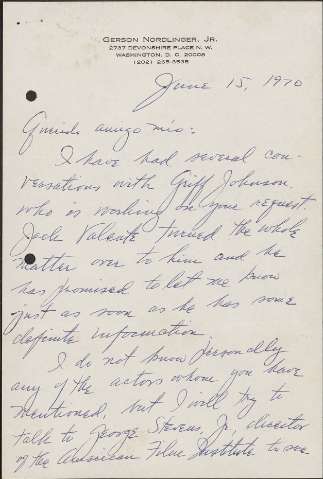 GERSON NORDLINGER, JR.
2737 DEVONSHIRE PLACE N. W.
WASHINGTON, D. C. 20008
(202) 265-3838
June 15, 1970
Querido amigo mio:
I have had several con-
versations with Griff Johnson,
who is working on your request.
Jack Valente turned the whole
matter over to him and he
has promised to let me know
just as soon as he has some
definite information.
I do not know personally
any of the actors whom you have
mentioned, but I will try to
talk to George Stevens, Jr., director
of the American Film Institute to see